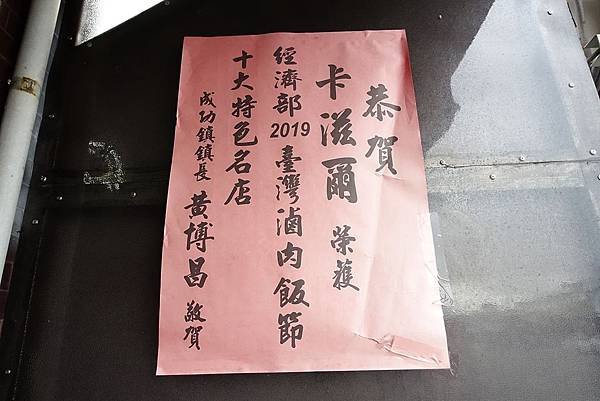 恭賀
卡滋爾 榮獲
經濟部2019臺灣滷肉飯節
十大特色名店
成功鎮鎮長 黃博昌 敬賀